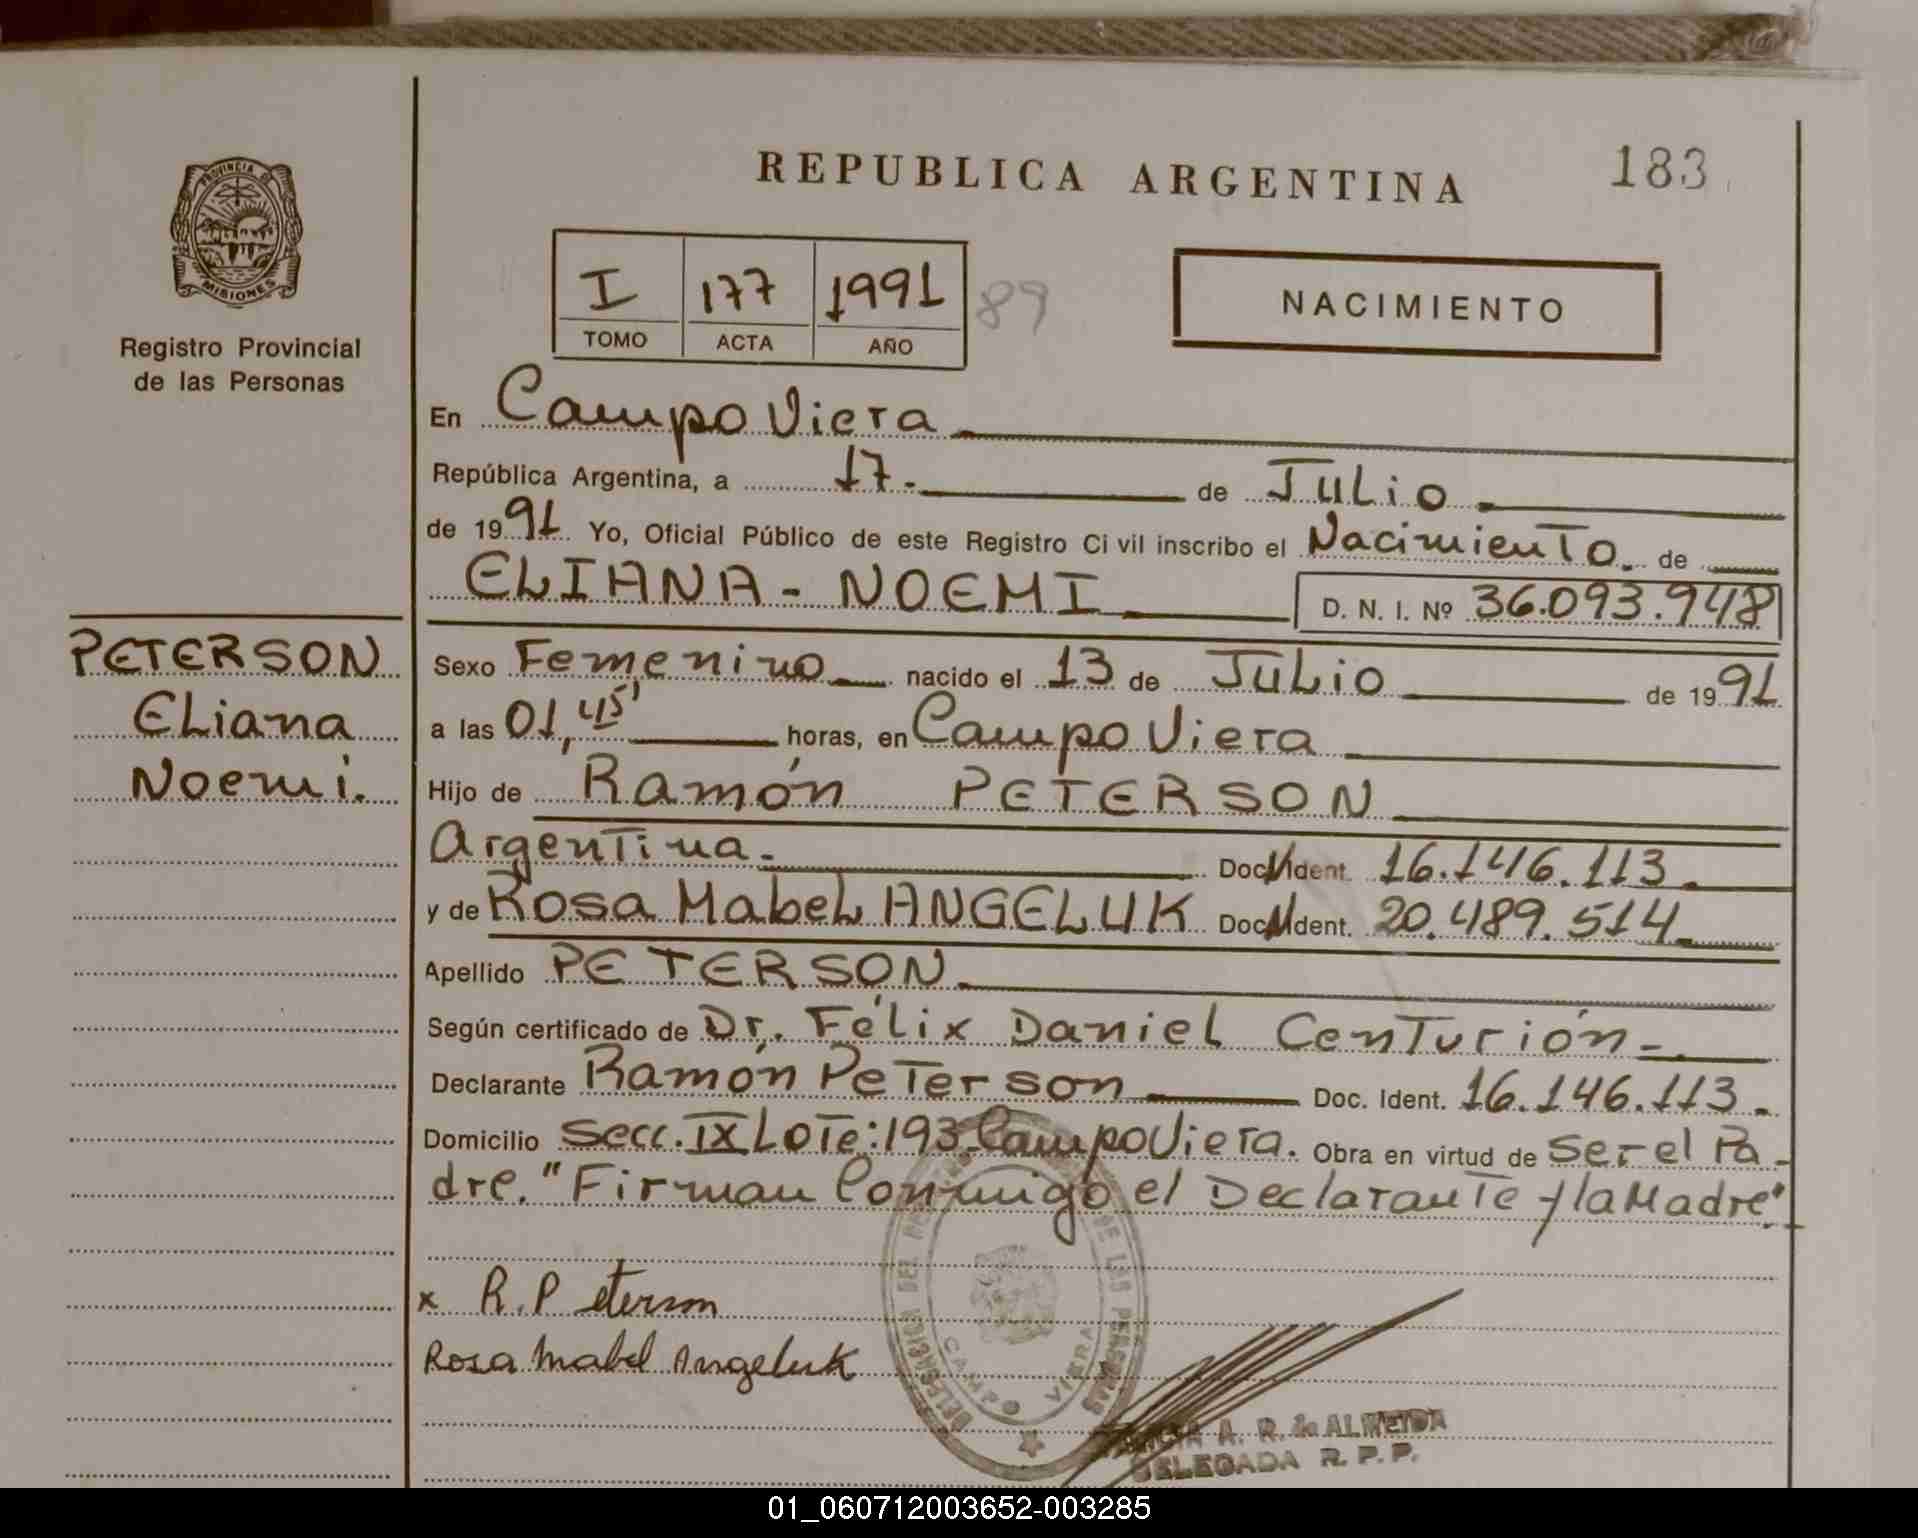 PROVINCIA D
MISIONES
Registro Provincial
de las Personas
REPUBLICA ARGENTINA
183
I 177 1991
TOMO ACTA AÑO
89
NACIMIENTO
En Campo Viera
República Argentina, a 17.- de Julio.
de 1991. Yo, Oficial Público de este Registro Ci vil inscribo el Nacimiento. de
ELIANA - NOEMI D. N. I. Nº 36.093.948
PETERSON
Eliana
Noemi.
Sexo Femenino nacido el 13 de Julio de 1991
a las 01,45' horas, en Campo Viera
Hijo de Ramón PETERSON
Argentina. Doc. Ident. 16.146.113.
y de Rosa Mabel ANGELUK Doc. Ident. 20.489.514
Apellido PETERSON
Según certificado de Dr. Félix Daniel Centurión
Declarante Ramón Peterson Doc. Ident. 16.146.113.
Domicilio Secc. IX Lote: 193. Campo Viera. Obra en virtud de Ser el Pa-
dre. "Firman Conmigo el Declarante y la Madre".
x R. Peterson
Rosa Mabel Angeluk
DELEGACION DEL DE LAS PERSONAS
CAMPO VIERA
A. R. de ALMEIDA
DELEGADA R. P. P.
01_060712003652-003285